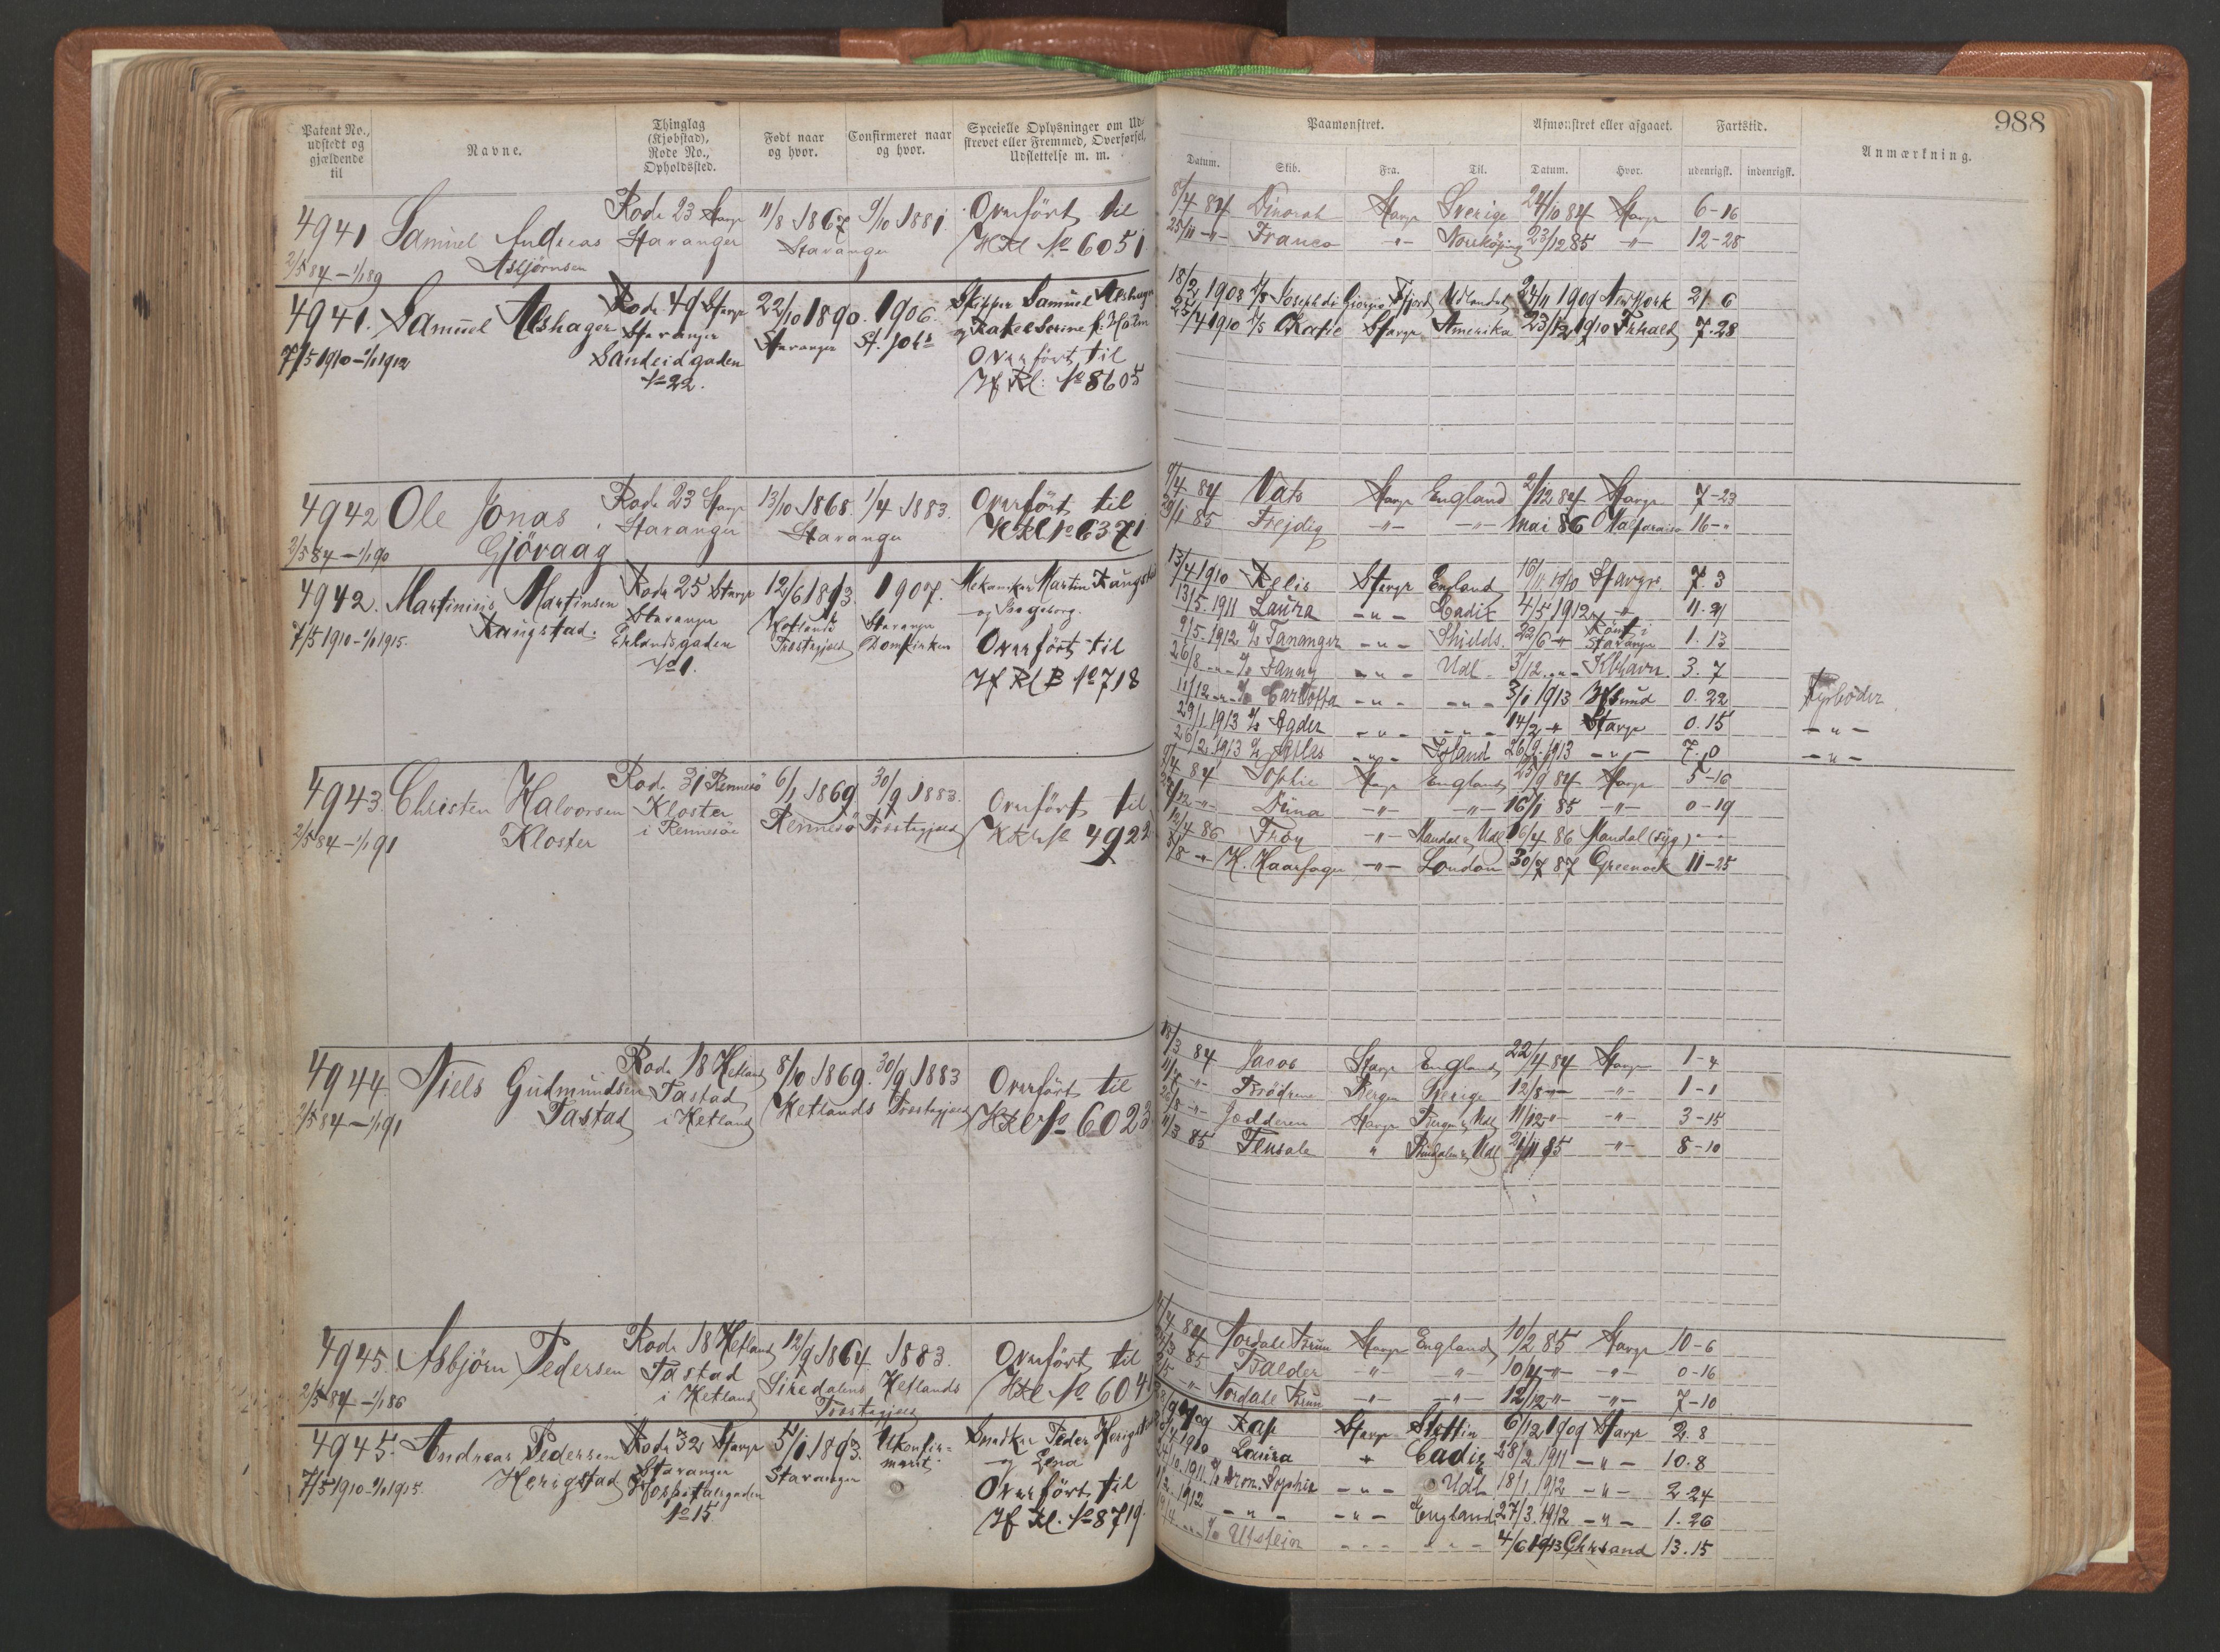 988
Patent No., udstedt og gjældende til
Navne.
Thinglag (Kjøbstad), Rode No., Opholdssted.
Født naar og hvor.
Confirmeret naar og hvor.
Specielle Oplysninger om Udstrevet eller Fremmed, Overførsel, Udslettelse m. m.
Paamønstret.
Afmønstret eller afgaaet.
Fartstid.
Anmærkning.
Datum.
Skib.
Fra.
Til.
Datum.
Hvor.
udenrigsk.
indenrigsk.
4941 Samuel Andreas Asbjørnsen
2/5 84 – 1/1 89
Rode 23 Stavgr
Stavanger
11/8 1867 9/10 1881
Stavanger
Overført til
No 6051
8/4 84 Dinorah Stavgr Sverige 24/10 84 Stavgr 6-16
25/11 -"- Franco -"- Norrköping 23/12 85 -"- 12-28
4941. Samuel Alshager
7/5 1910 – 1/1 1912
Rode 49 Stavgr
Stavanger
Sandeidgaden
No 22.
22/10 1890. 1906.
Stavanger St. Johs
Skipper Samuel Alshager
Overført til
Hf Kl: No 8605
18/2 1908 Joseph di Giorgio Udlandet 24/11 1909 New York 21. 6
25/4 1910 Katie Stavgr Amerika 23/12 1910 7.28
4942 Ole Jonas Gjøvaag
2/5 84 – 1/1 90
Rode 23 Stavgr
Stavanger
13/10 1868. 1/4 1883.
Stavanger
Overført til
9/4 84 Vats Stavgr England 2/12 84 Stavgr 7-23
85 Frejdig -"- -"- Mai 86 Valparaiso 16-"
4942. Martinius Martinsen Raugstad.
7/5 1910 – 1/1 1915.
Rode 25 Stavgr
Stavanger
Erlandsgaden
No 1.
12/6 1893. 1907.
Hetlands Stavanger
Præstegjeld Domkirken
Mekaniker Martin Raugstad
og Ingeborg.
Overført til
Hf Kl B No 718
13/4 1910 Stavgr England Stavgr 7. 3
13/5. 1911 Laura -"- Cadix 4/5 1912 -"- 11. 21
9/5. 1912 Tananger -"- Shields. 22/6 -"- Stavanger 1. 13
26/8 -"- Fanny -"- Udl 3/12. -"- Kbhavn. 3. 7
11/12 -"- Carlotta -"- -"- 3/1 1913 Hfsund 0. 22 Fyrbøder
29/1 1913 Agder -"- -"- 14/2 -"- Stavgr 0. 15 -"-
26/2 1913 Atlas -"- Island 26/9. 1913 -"- 7. 0 -"-
4943. Christen Halvorsen Kloster
2/5 84 – 1/1 91
Rode 31 Rennesø
Kloster
i Rennesøe
6/1 1869 30/9 1883.
Rennesø Præstegjeld
Overført til
No 4922
9/4 84 Sophie Stavgr England 25/9 84 Stavgr 5-16
-"- Dina -"- -"- 16/1 85 -"- 0-19
12/4 86 Frøy -"- Mandal & Udl 16/4 86 Mandal (syg) -"-
8/8 -"- H. Haarfager -"- London 30/7 87 Greenock 11-25
4944. Niels Gudmundsen Tastad
2/5 84 – 1/1 91
Rode 18 Hetland
Tastad
i Hetland
8/10 1869. 30/9 1883
Hetlands Præstegjeld
Overført til
No 6023
84 Jacob Stavgr England 22/4 84 Stavgr 1-4
-"- Brødrene Bergen Sverige 12/8 -"- -"- 1-1
-"- Jædderen Stavgr Bergen & Udl 11/12 -"- -"- 3-15
11/3 85 " 21/11 85 -"- 8-10
4945. Asbjørn Pedersen
2/5 84 – 1/1 86
Rode 18 Hetland
Tastad
i Hetland
12/9 1864 1883.
Siredalens Hetlands
Præstegjeld
Overført til
84 Nordahl Brun Stavgr England 10/2 85 Stavgr 10-6
85 Balder " " 10/4 -"- -"- 0-16
-"- Nordahl Brun -"- -"- 12/12 -"- -"- 7-10
4945. Andreas Pedersen Herigstad
7/5 1910 – 1/1 1915.
Rode 32 Stavgr
Stavanger
Hospitalsgaden
No 15
5/1 1893. Ukonfirmeret
Stavanger
Snedker Peder Herigstad
og Lena
Overført til
Hf Kl. No 8719.
Rap Stavgr Stettin 6/12 1909 Stavgr 2. 8
Laura " Cadiz 28/2. 1911 -"- 10. 8
1911. Dron. Sophie -"- Udl. 18/1 1912 -"- 2. 24
1912 -"- -"- England 27/3. 1912 -"- 1. 26
Utstein -"- -"- 4/6 1913 Chrsand 13. 15